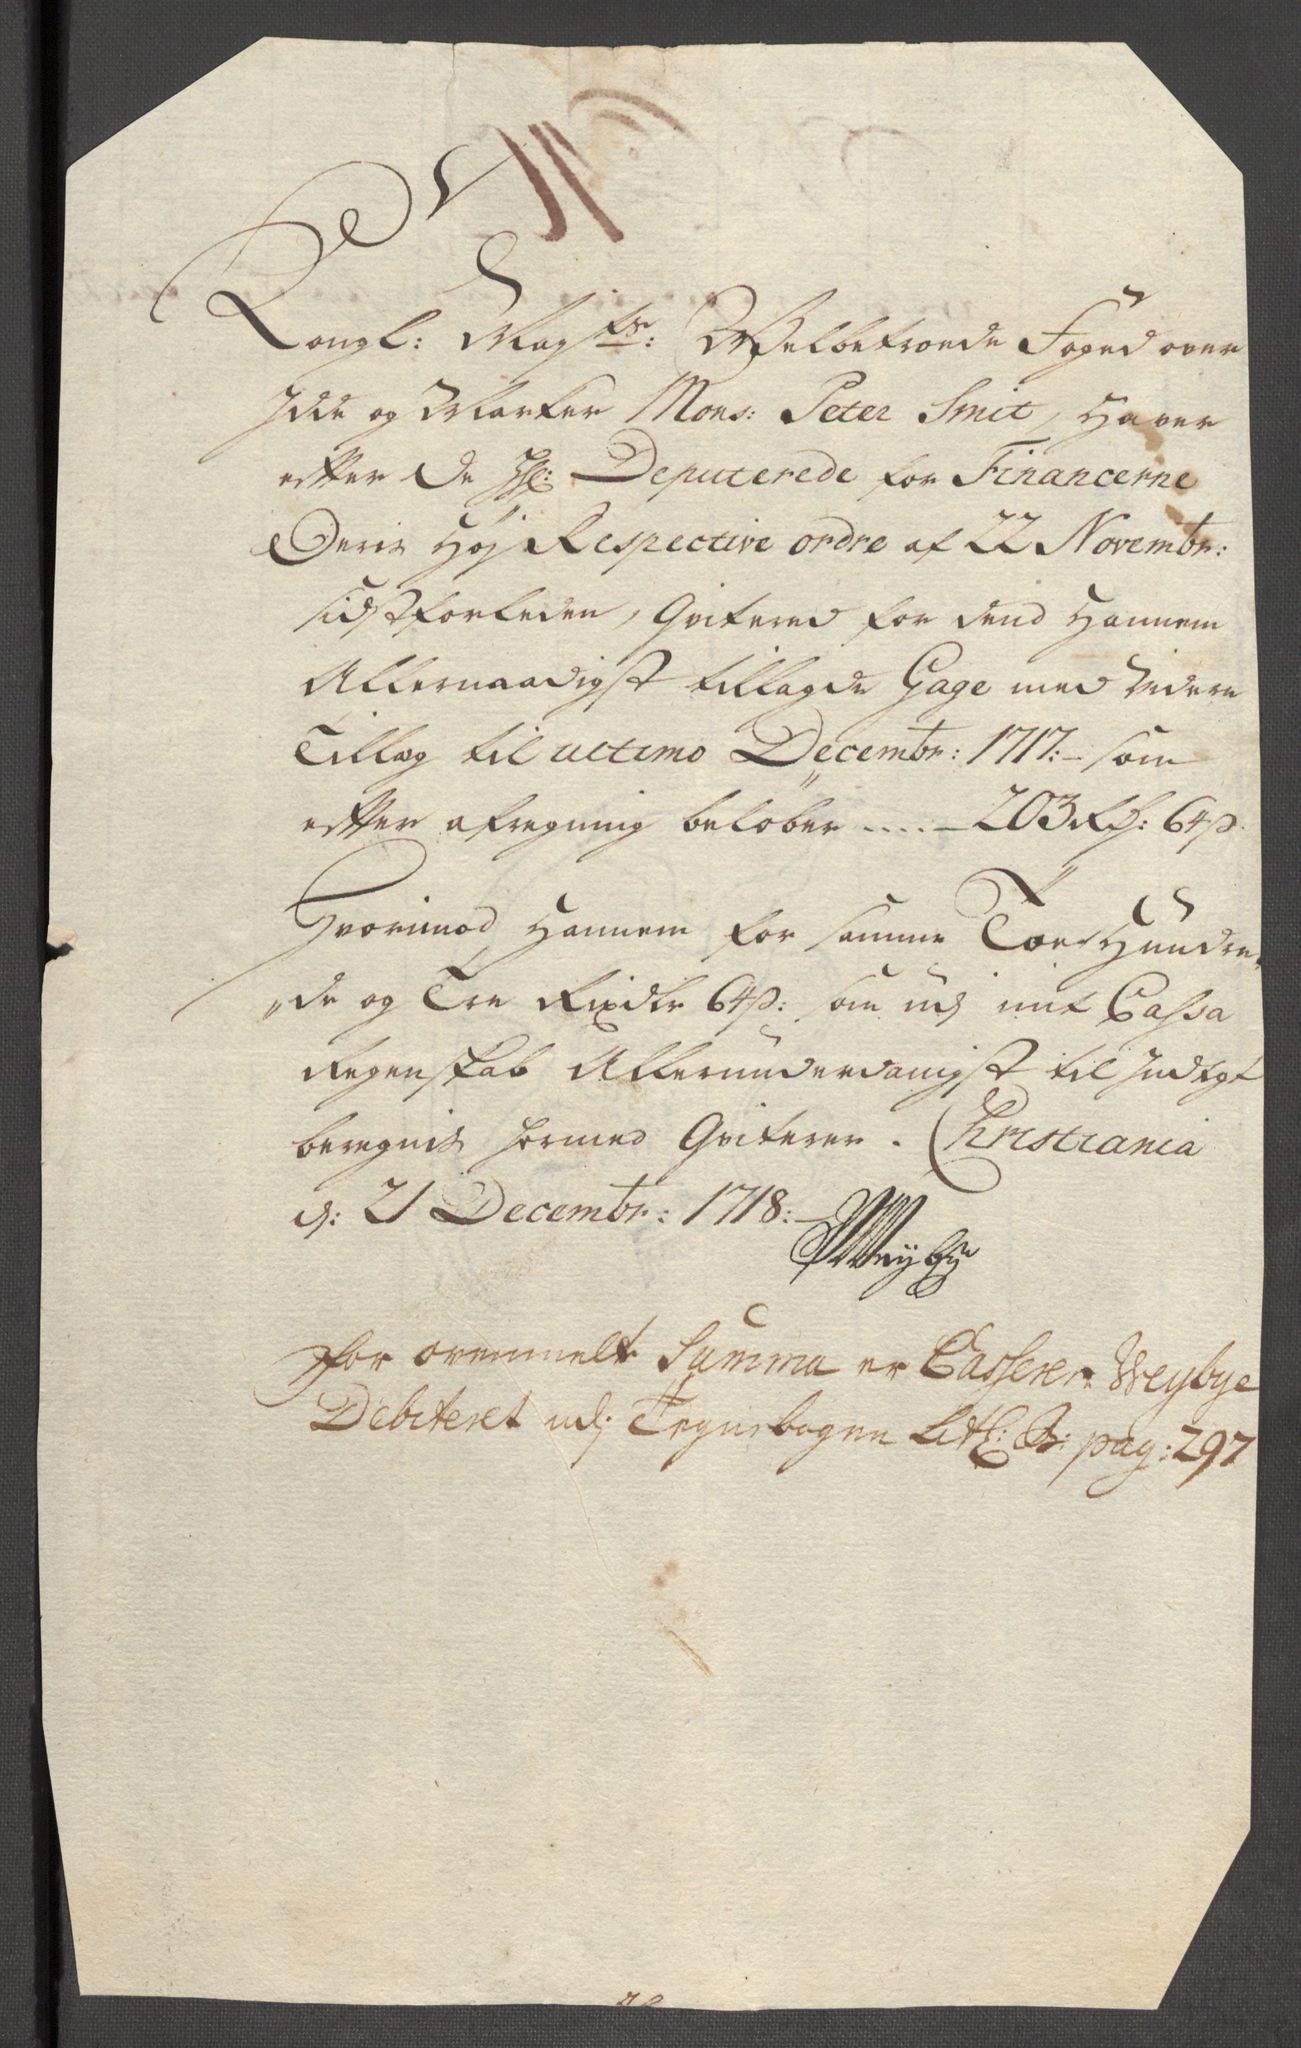 Kongl: Mayts: Velbetroede Foged over
Idde og Marker Mons: Peter Smit, Haver
efter De HH: Deputerede for Financerne
Deris Høj Respective ordre af 22 Novembr:
sidstforleden, Qvitered for dend Hannem
Allernaadigst tillagde Gage med Videre
Tillæg til ultimo Decembr: 1717:- som
efter afregning beløber ..... 203 Rd: 64 s.
Hvorimod Hannem for samme Toe Hundre-
de og Tre Rixdlr 64 s: som udj mit Cassa
Regenskab Allerunderdanigst til Indtgt
beregnis hermed Qviterer. Christiania
d: 21 Decembr: 1718:-
Weybye
For ovenmelte Summa er Casserer Weybye
Debiteret udj Tegnebogen Litr: B: pag: 297